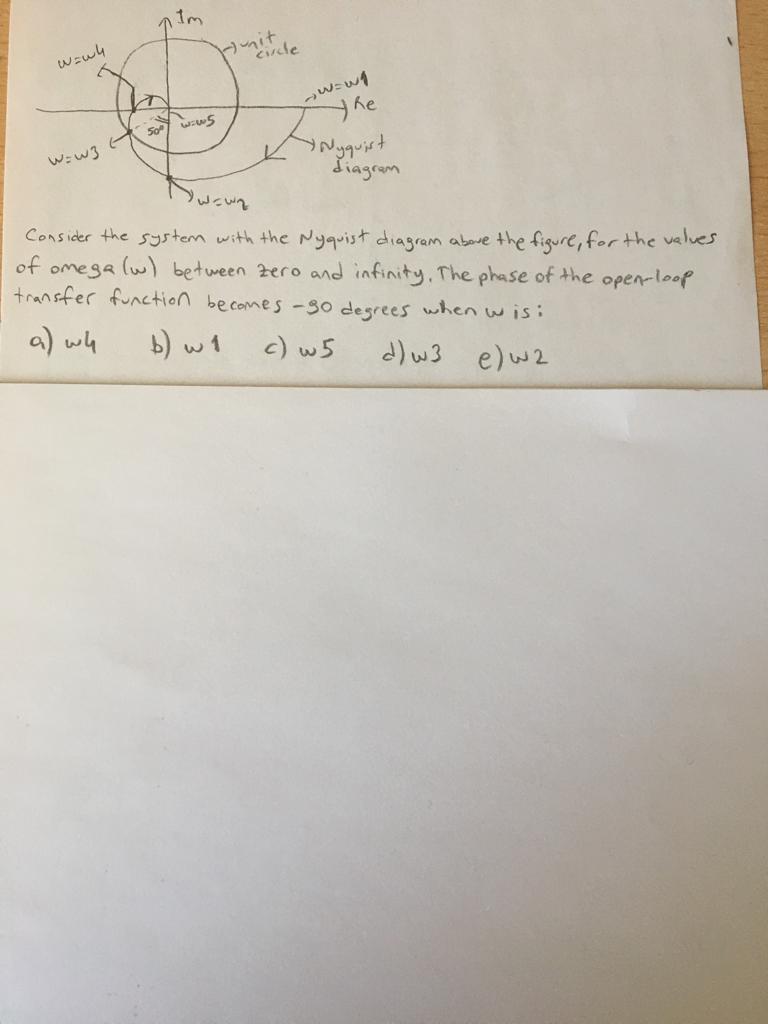 Im
w=w4
unit
circle
w=w1
Re
50°
w=w5
w=w3
Nyquist
diagram
w=w2
Consider the system with the Nyquist diagram above the figure, for the values
of omega (w) between zero and infinity. The phase of the open-loop
transfer function becomes -90 degrees when w is:
a) w4 b) w1 c) w5 d) w3 e) w2